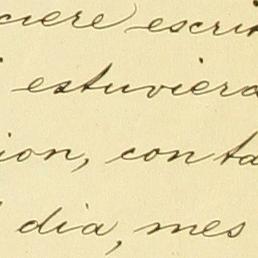 ciere escri
estuviera
ion, con ta
dia, mes